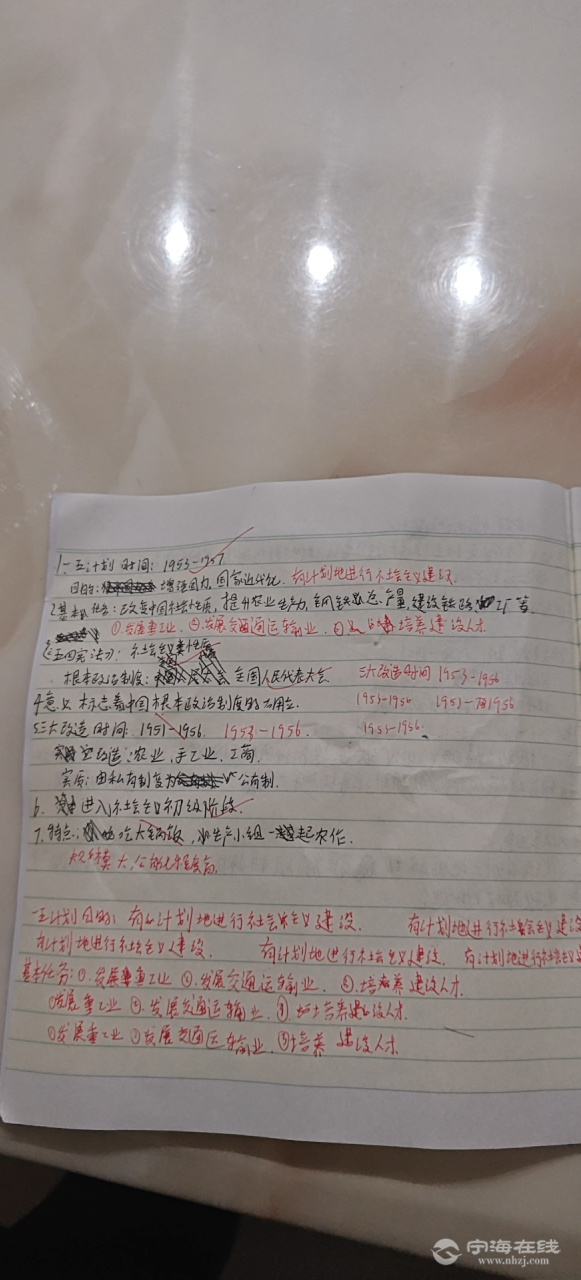 1.一五计划 时间：1953-1957
目的：增强国力，国家近代化. 有计划地进行社会主义建设.
2.基本任务：改变中国社会性质，提升农业生产力，钢铁总产量，建设铁路 工厂等
①发展重工业，②发展交通运输业，③ 培养建设人才
3.《五四宪法》：社会主义类性质
根本政治制度： 全国人民代表大会 三大改造时间 1953-1956
4.意义 标志着中国根本政治制度的确立. 1953-1956 1953-1956
5.三大改造 时间：1951-1956. 1953-1956. 1953-1956.
改造：农业，手工业，工商.
实质：由私有制变为 公有制.
6. 进入社会主义初级阶段.
7.特点： 吃大锅饭， 生产小组一起农作.
规模大，公有化程度高.
一五计划目的：有计划地进行社会主义建设. 有计划地进行社会主义建设
有计划地进行社会主义建设. 有计划地进行社会主义建设. 有计划地进行社会主义建设
基本任务：①.发展重工业 ②.发展交通运输业. ③.培养建设人才.
①发展重工业 ②.发展交通运输业. ③ 培养建设人才.
①发展重工业 ②发展交通运输业. ③培养 建设人才
宁海在线
www.nhzj.com